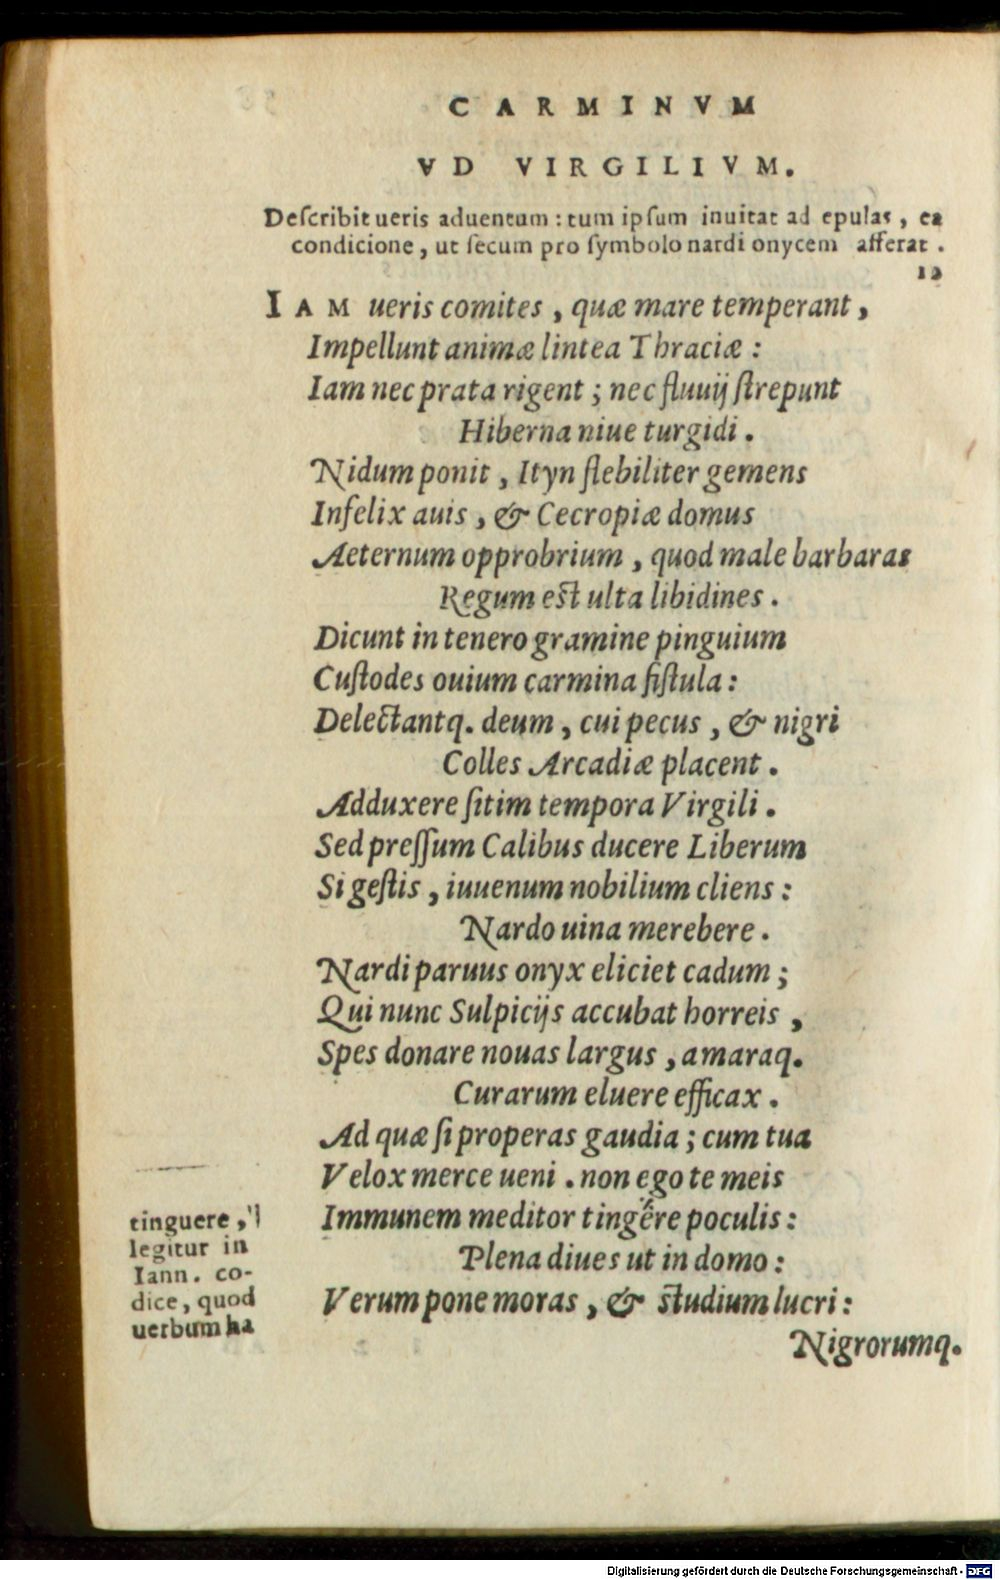 CARMINVM
VD VIRGILIVM.
Deſcribit ueris aduentum : tum ipſum inuitat ad epulas, ea
condicione, ut ſecum pro ſymbolo nardi onycem afferat.
12
IAM ueris comites, quæ mare temperant,
Impellunt animæ lintea Thraciæ:
Iam nec prata rigent; nec fluuij ſtrepunt
Hiberna niue turgidi.
Nidum ponit, Ityn flebiliter gemens
Infelix auis, & Cecropiæ domus
Aeternum opprobrium, quod male barbaras
Regum eſt ulta libidines.
Dicunt in tenero gramine pinguium
Cuſtodes ouium carmina fiſtula:
Delectantq. deum, cui pecus, & nigri
Colles Arcadiæ placent.
Adduxere ſitim tempora Virgili.
Sed preſſum Calibus ducere Liberum
Si geſtis, iuuenum nobilium cliens:
Nardo uina merebere.
Nardi paruus onyx eliciet cadum;
Qui nunc Sulpicijs accubat horreis,
Spes donare nouas largus, amaraq.
Curarum eluere efficax.
Ad quæ ſi properas gaudia; cum tua
Velox merce ueni. non ego te meis
Immunem meditor tingere poculis:
Plena diues ut in domo:
Verum pone moras, & ſtudium lucri:
Nigrorumq.
tinguere,
legitur in
Iann. co-
dice, quod
uerbum ha
Digitalisierung gefördert durch die Deutsche Forschungsgemeinschaft - DFG